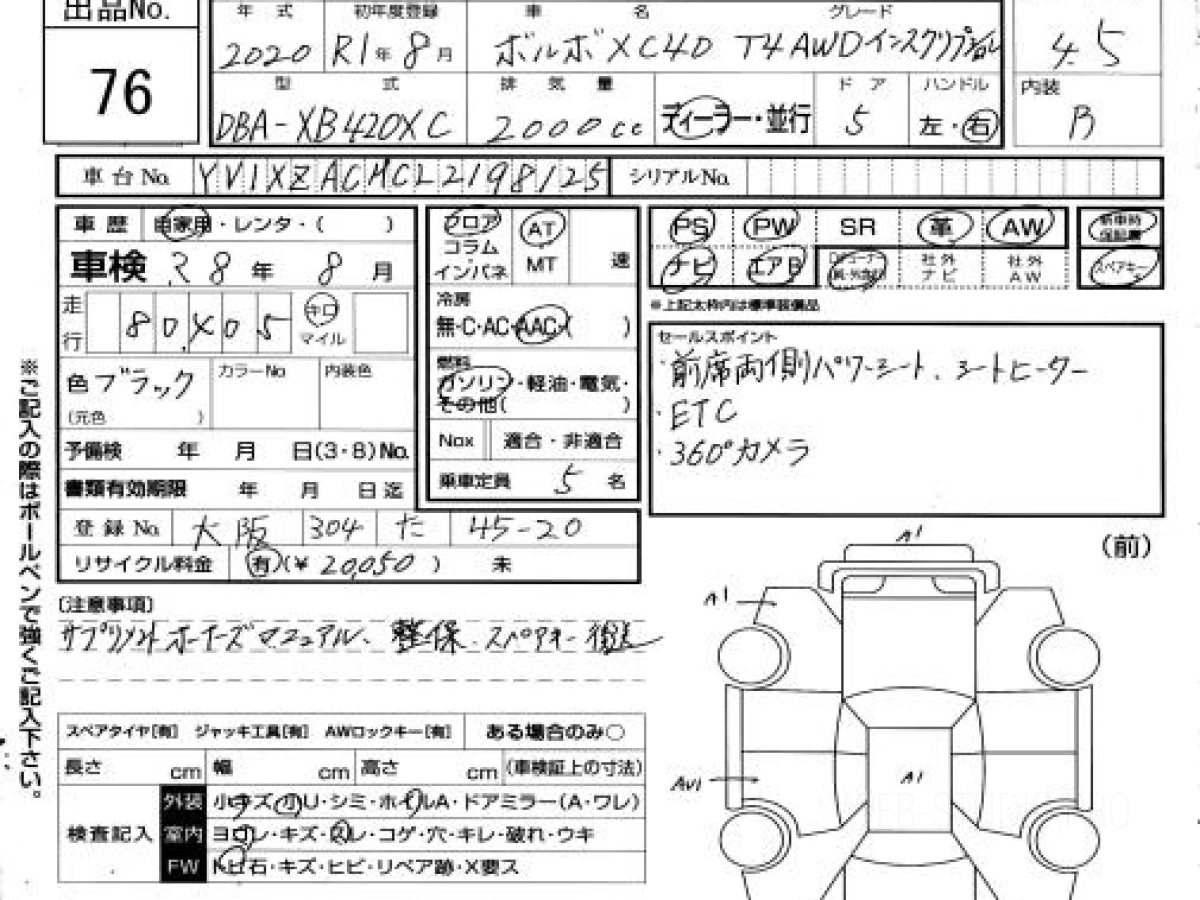 出品No.
76
年式 初年度登録 車名 グレード
2020 R1年8月 ボルボXC40 T4AWDインスクリプション
4.5
型式 排気量 ドア ハンドル 内装
DBA-XB420XC 2000cc ディーラー・並行 5 左・右 B
車台No. YV1XZACMCL2198125 シリアルNo.
車歴 自家用・レンタ・( )
車検 R8年 8月
走行 80,X05 キロ マイル
色 ブラック カラーNo 内装色
(元色 )
予備検 年 月 日(3・8)No.
書類有効期限 年 月 日迄
登録No. 大阪 304 た 45-20
リサイクル料金 有(¥ 20,050 ) 未
フロア AT
コラム MT 速
インパネ
冷房
無・C・AC・AAC・( )
燃料
ガソリン・軽油・電気・
その他( )
Nox 適合・非適合
乗車定員 5 名
PS PW SR 革 AW 新車時保証書
ナビ エアB 社外ナビ 社外AW スペアキー
※上記太枠内は標準装備品
セールスポイント
・前席両側パワーシート、シートヒーター
・ETC
・360°カメラ
※ご記入の際はボールペンで強くご記入下さい。
〔注意事項〕
サプリメントオーナーズマニュアル、整保、スペアキー後送
スペアタイヤ[有] ジャッキ工具[有] AWロックキー[有] ある場合のみ○
長さ cm 幅 cm 高さ cm (車検証上の寸法)
検査記入
外装 小キズ・小U・シミ・ホイルA・ドアミラー(A・ワレ)
室内 ヨゴレ・キズ・スレ・コゲ・穴・キレ・破れ・ウキ
FW トビ石・キズ・ヒビ・リペア跡・X要ス
(前)
A1
A1
AW1
A1